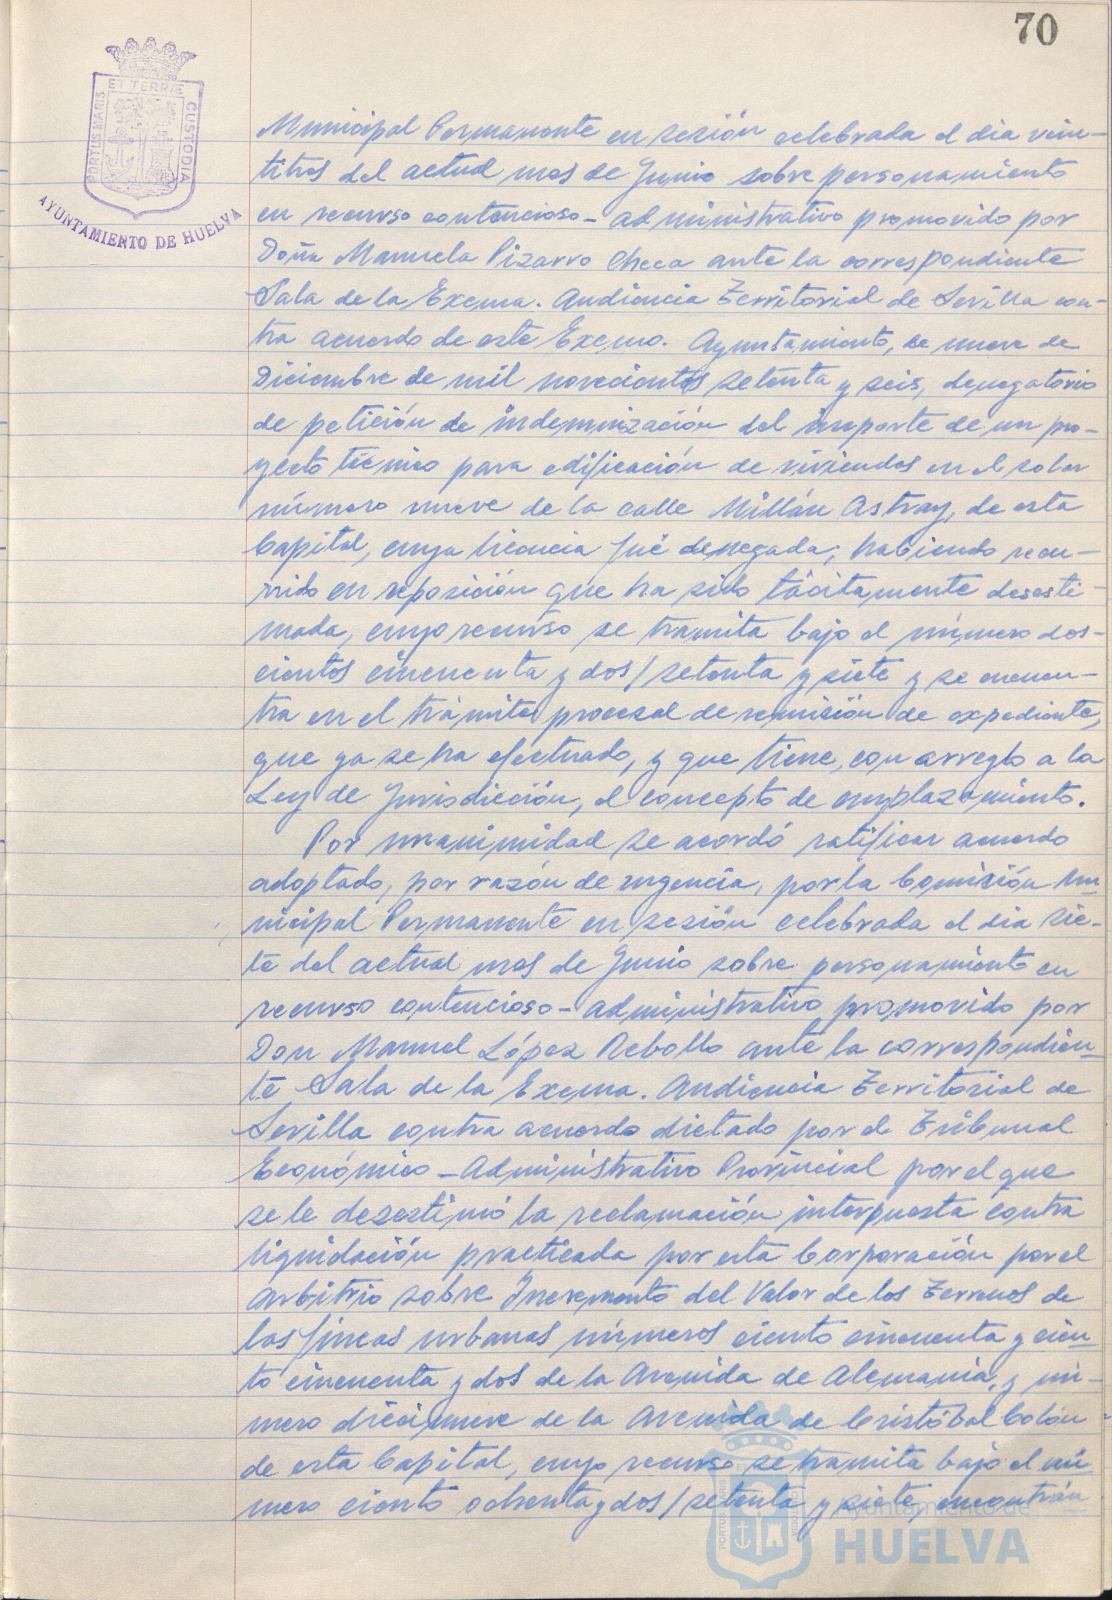 70
ET TERRÆ
PORTUS MARIS
CUSTODIA
AYUNTAMIENTO DE HUELVA
Municipal Permanente en sesión celebrada el día vein-
titrés del actual mes de Junio sobre personamiento
en recurso contencioso-administrativo promovido por
Doña Manuela Pizarro Checa ante la correspondiente
Sala de la Excma. Audiencia Territorial de Sevilla con-
tra acuerdo de este Excmo. Ayuntamiento, de nueve de
Diciembre de mil novecientos setenta y seis, denegatorio
de petición de indemnización del importe de un pro-
yecto técnico para edificación de viviendas en el solar
número nueve de la calle Millán Astray, de esta
Capital, cuya licencia fué denegada; habiendo recu-
rrido en reposición que ha sido tácitamente desesti-
mada, cuyo recurso se tramita bajo el número dos-
cientos cincuenta y dos/setenta y siete y se encuen-
tra en el trámite procesal de remisión de expediente,
que ya se ha efectuado, y que tiene, con arreglo a la
Ley de Jurisdicción, el concepto de emplazamiento.
Por unanimidad se acordó ratificar acuerdo
adoptado, por razón de urgencia, por la Comisión Mu-
nicipal Permanente en sesión celebrada el día sie-
te del actual mes de Junio sobre personamiento en
recurso contencioso-administrativo promovido por
Don Manuel López Rebollo ante la correspondien-
te Sala de la Excma. Audiencia Territorial de
Sevilla contra acuerdo dictado por el Tribunal
Económico-Administrativo Provincial por el que
se le desestimó la reclamación interpuesta contra
liquidación practicada por esta Corporación por el
arbitrio sobre Incremento del Valor de los Terrenos de
las fincas urbanas números ciento cincuenta y cien-
to cincuenta y dos de la Avenida de Alemania, y nú-
mero diecinueve de la Avenida de Cristóbal Colón
de esta Capital, cuyo recurso se tramita bajo el nú-
mero ciento ochenta y dos/setenta y siete, encontrán
Ayuntamiento de
HUELVA